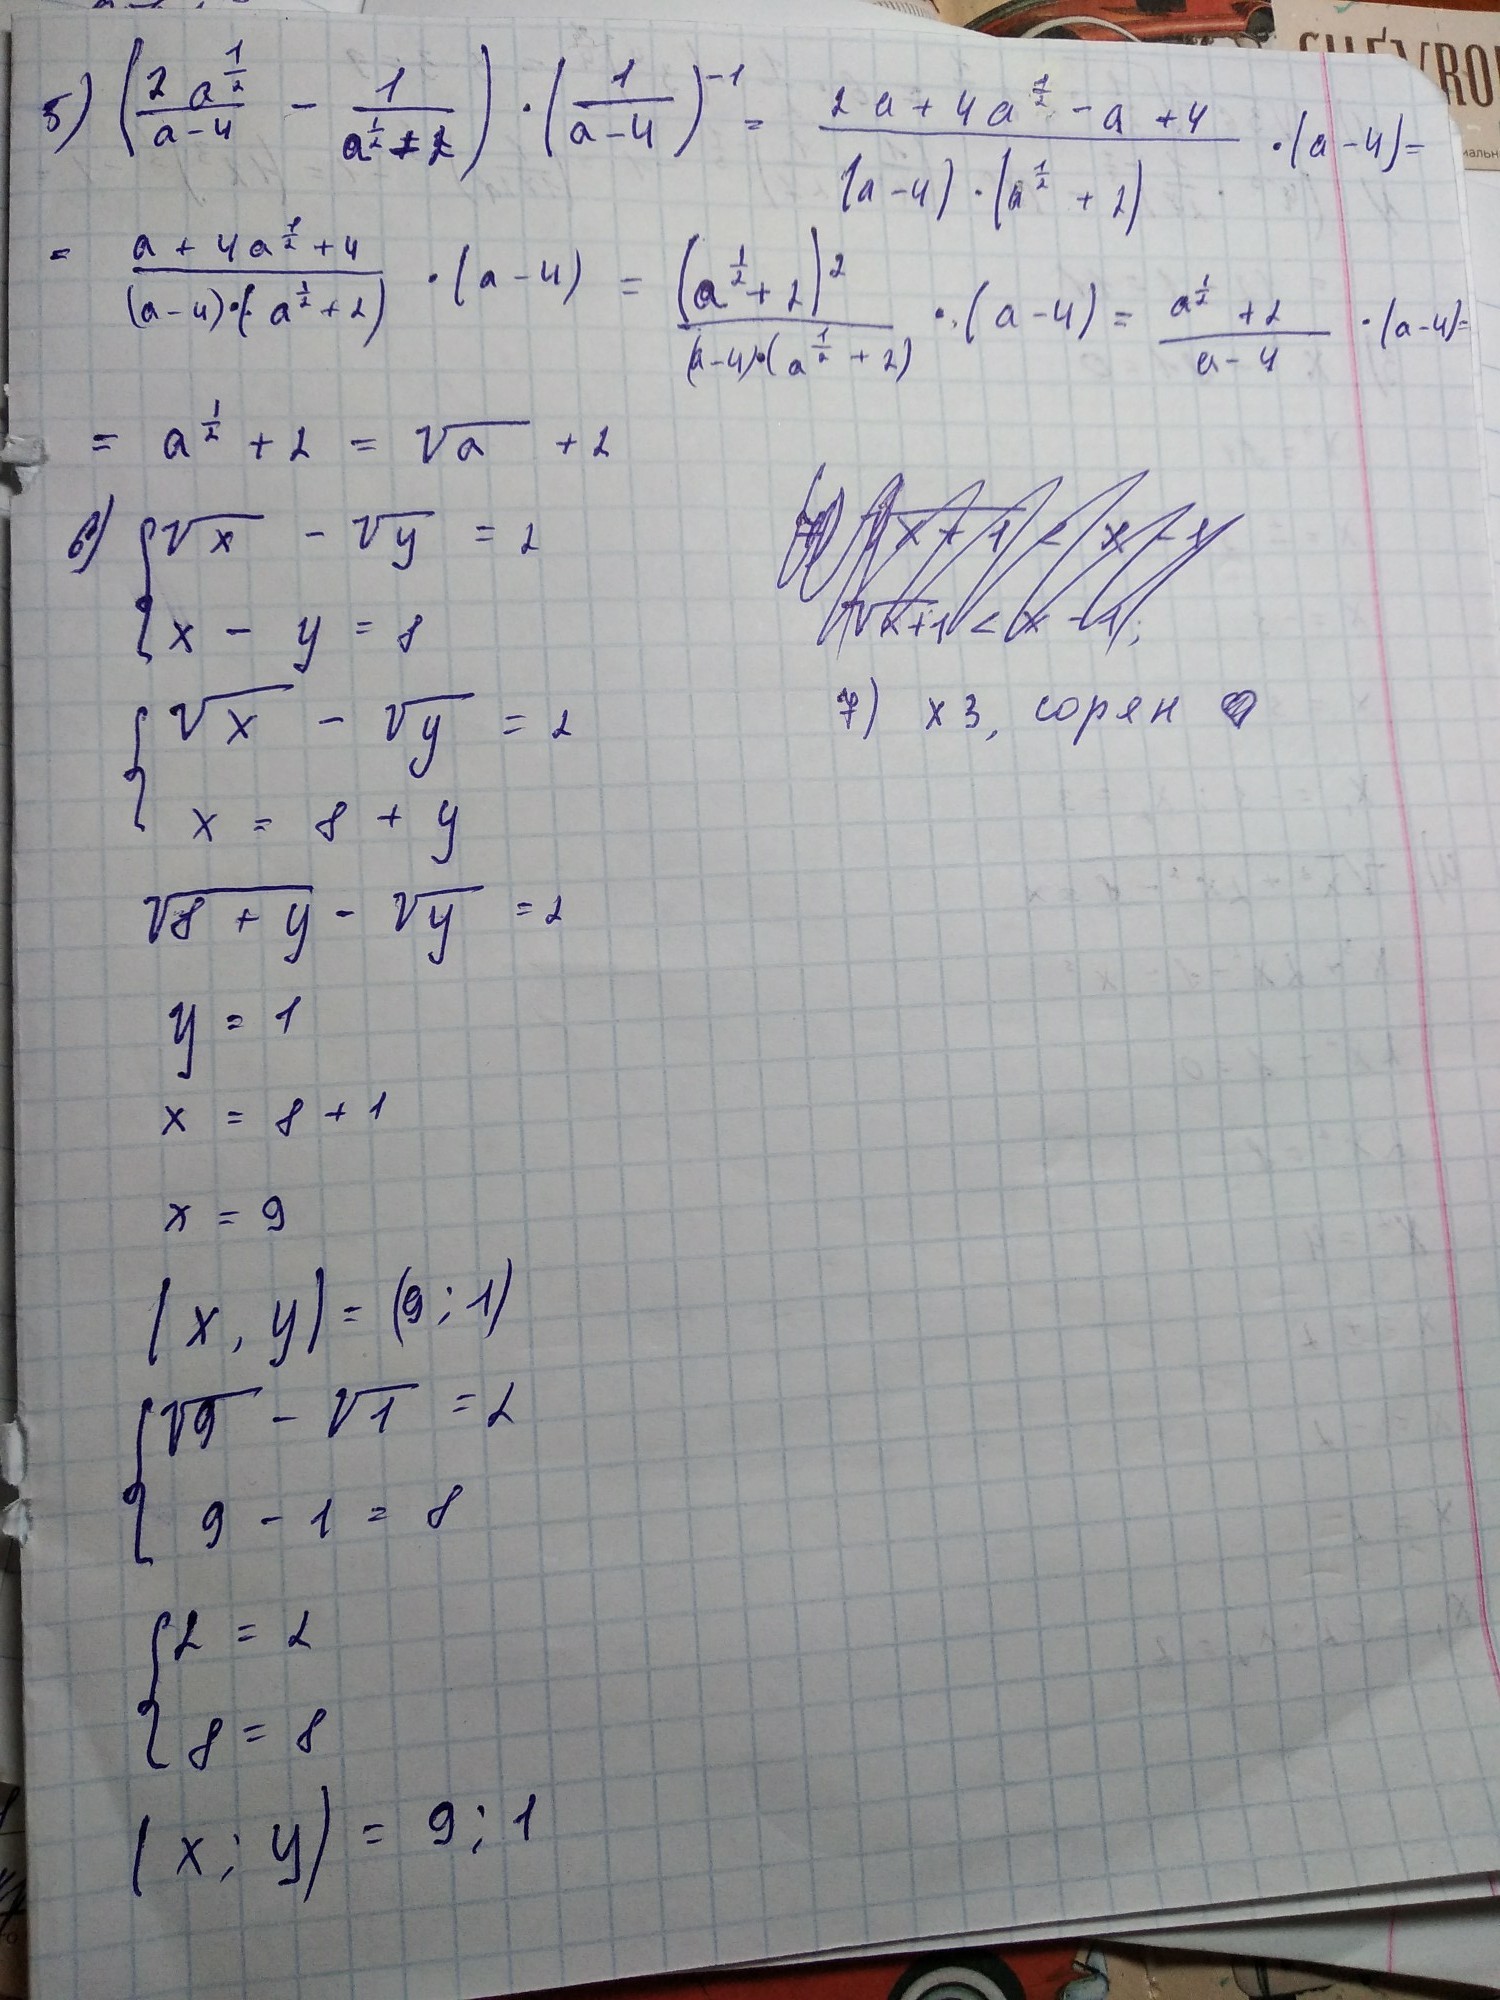 5) (2a^{1/2}/(a-4) - 1/(a^{1/2}+2)) · (1/(a-4))^{-1} = (2a + 4a^{1/2} - a + 4)/((a-4)·(a^{1/2}+2)) · (a-4) =
= (a + 4a^{1/2} + 4)/((a-4)·(a^{1/2}+2)) · (a-4) = (a^{1/2}+2)^2/((a-4)·(a^{1/2}+2)) · (a-4) = (a^{1/2}+2)/(a-4) · (a-4) =
= a^{1/2} + 2 = √a + 2
6) { √x - √y = 2
x - y = 8
{ √x - √y = 2
x = 8 + y
√8 + y - √y = 2
y = 1
x = 8 + 1
x = 9
(x, y) = (9; 1)
{ √9 - √1 = 2
9 - 1 = 8
{ 2 = 2
8 = 8
(x; y) = 9; 1
√x+1 < x - 1;
7) хз, сорян ♡
CHEVRO